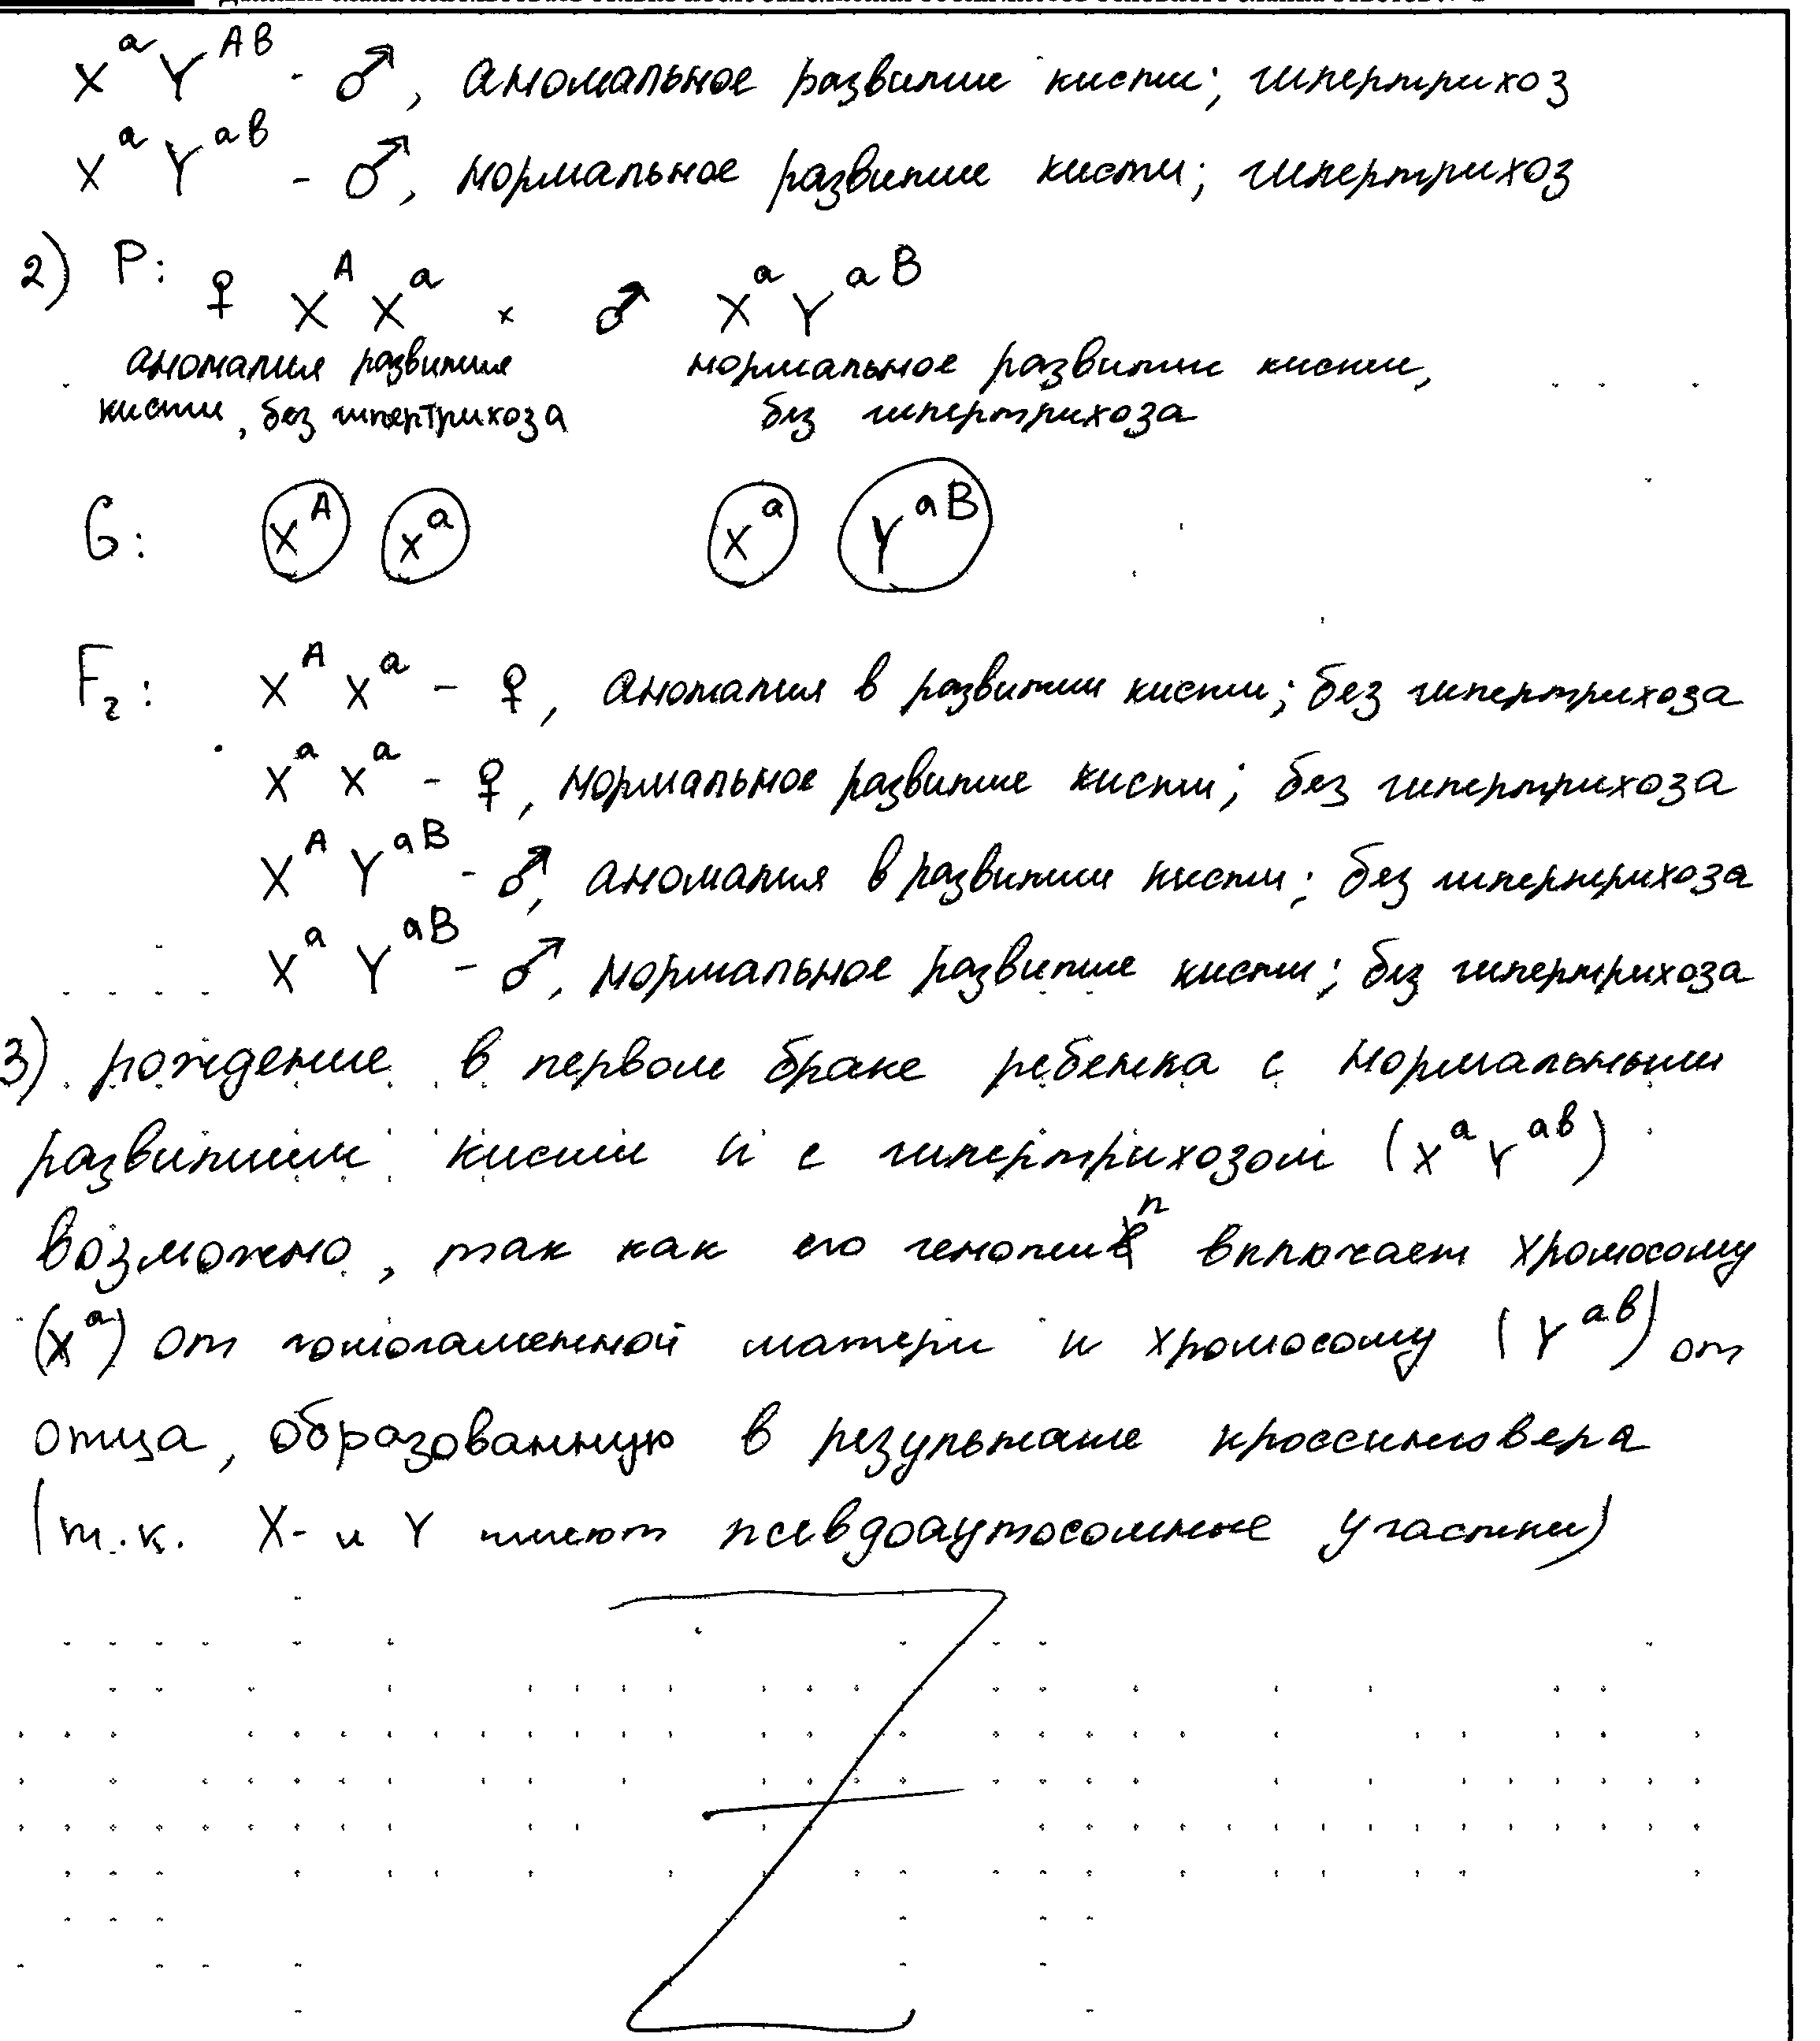 X^a Y^AB - ♂, аномальное развитие кисти; гипертрихоз
X^a Y^ab - ♂, нормальное развитие кисти; гипертрихоз
2) P: ♀ X^A X^a × ♂ X^a Y^aB
аномалия развития нормальное развитие кисти,
кисти, без гипертрихоза без гипертрихоза
G: X^A X^a X^a Y^aB
F₂: X^A X^a - ♀, аномалия в развитии кисти; без гипертрихоза
X^a X^a - ♀, нормальное развитие кисти; без гипертрихоза
X^A Y^aB - ♂, аномалия в развитии кисти; без гипертрихоза
X^a Y^aB - ♂, нормальное развитие кисти; без гипертрихоза
3) рождение в первом браке ребенка с нормальным
развитием кисти и с гипертрихозом (X^a Y^ab)
возможно, так как его генотип включает хромосому
(X^a) от гомогаметной матери и хромосому (Y^ab) от
отца, образованную в результате кроссинговера
(т.к. X- и Y имеют псевдоаутосомные участки)